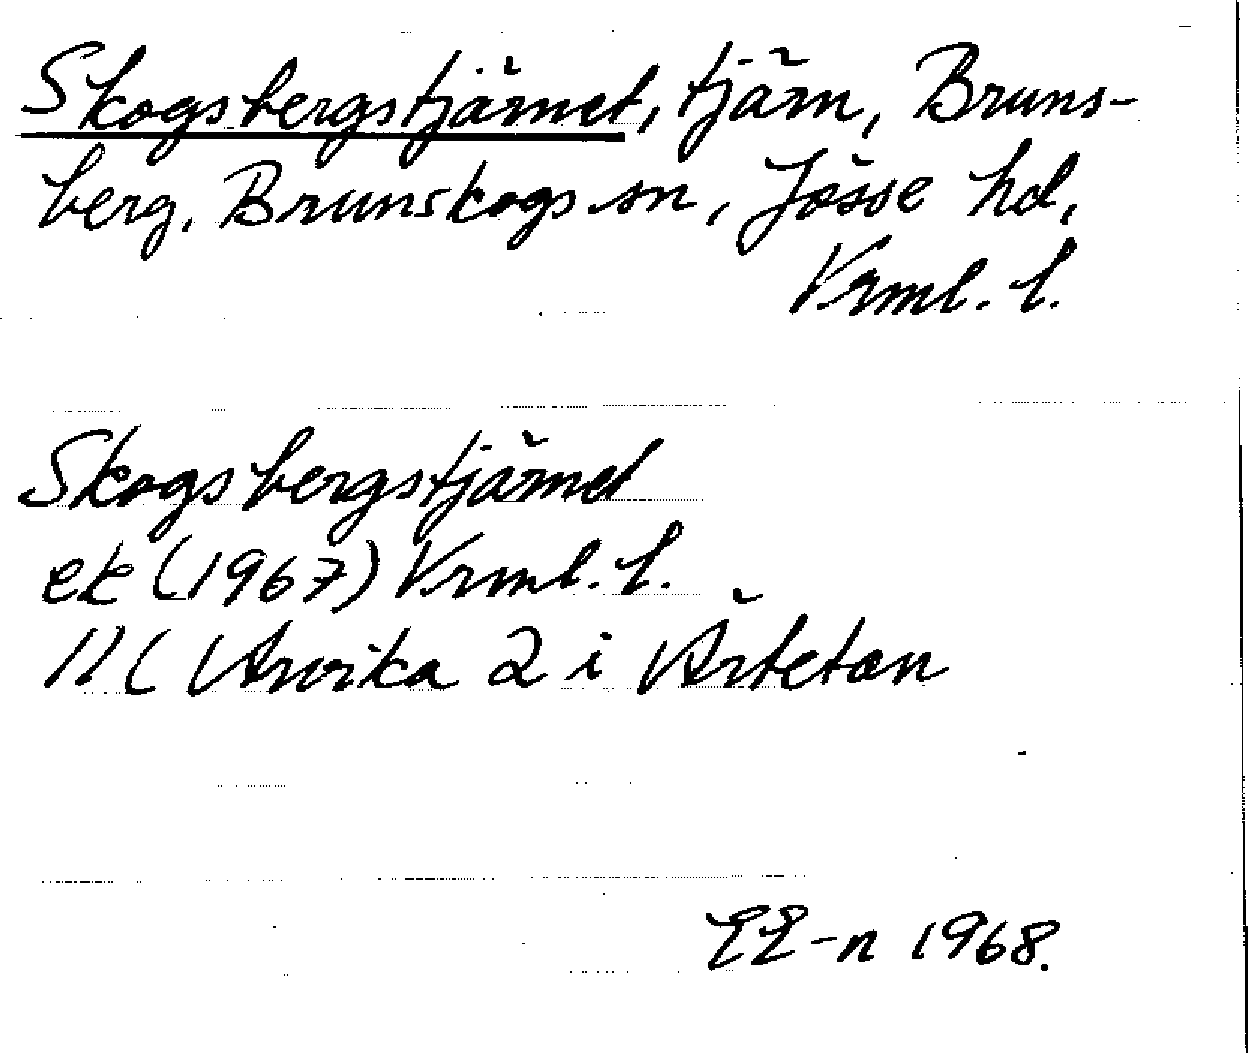 Skogsbergstjärnet, tjärn, Bruns-
berg, Brunskogs sn, Jösse hd,
Vrml. l.
Skogsbergstjärnet
ek (1967) Vrml. l.
11C Arvika 2 i Årtetan
EE-n 1968.